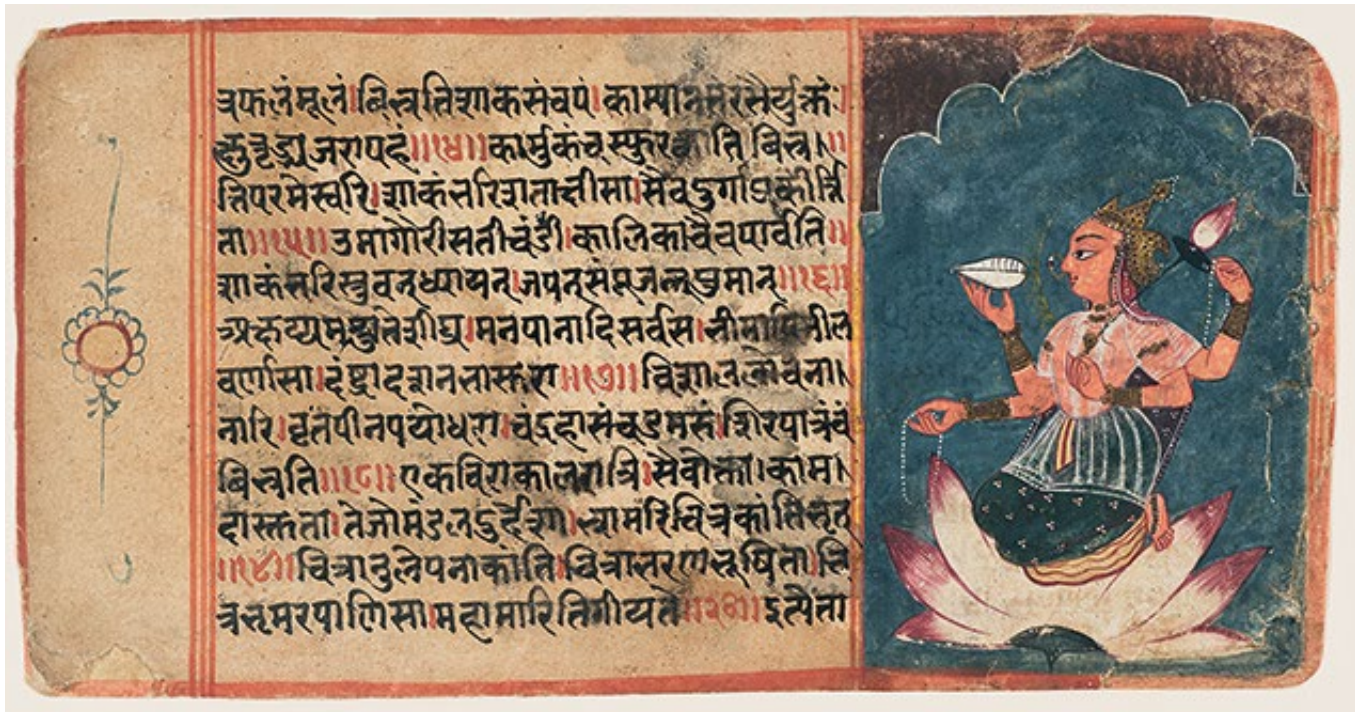 त्रफलंमूलं।बिभ्रतिशाकसंचयं।काम्यानंतरसैर्युक्तं
जरापहं॥१४॥कार्मुकंचस्फुरत्कांतिबिभ्र।॥
तिपरमेस्वरि।शाकंभरिशताक्षीसा।सैवदुर्गाप्रकीर्त्ति
ता॥१५॥उमागौरीसतीचंडी।कालिकाचैवपार्वति॥
शाकंभरिस्तुवन्ध्यायन्।जपन्संपूजन्नमान्॥१६॥
शीघ्रं।मनपानादिसर्वस।भीमापिनील
वर्णासा।दंष्ट्रादशनभास्करा॥१७॥विशाललोचना।
नारि।वृतंपीनपयोधरा।चंद्रहासंचडमरूं।शिरपात्रंचं
बिभ्रति॥१८॥एकविराकालरात्रि।सैवोक्ता।काम।
दास्तुता।तेजोमंडलदुर्दर्शा।भ्रामरिचित्रकांतिभृत्
॥१९॥चित्रानुलेपनाकांति।चित्राभरणभूषिता।चि
त्रभ्रमरपाणिसा।महामारितिगीयते॥२०॥इत्येता